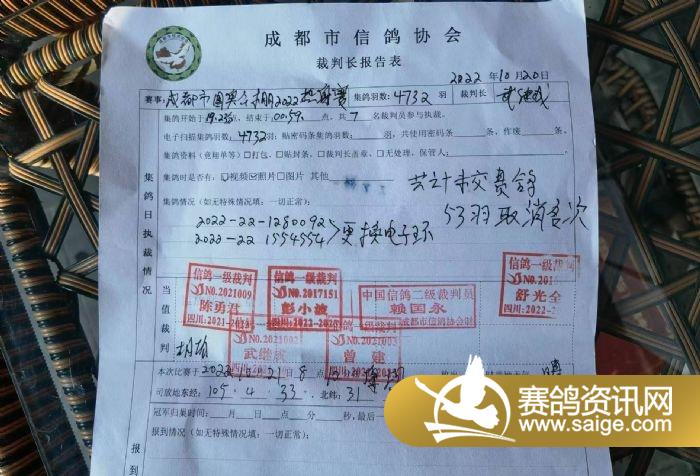 成都市信鸽协会
裁判长报告表
2022年10月20日
赛事: 成都市国 2022 赛 集鸽羽数: 4732 羽 裁判长
集鸽开始于 点, 结束于 00:59 点, 共 7 名裁判员参与执裁。
电子扫描集鸽羽数: 4732 羽; 贴密码条集鸽羽数: 羽, 共使用密码条 条, 作废 条。
集鸽资料(竞翔单等)□打包、□贴封条、□裁判长盖章、□无处理, 保管人:
集鸽时是否有: ☑视频☑照片□图片 其他 共计未交赛鸽
集鸽情况(如无特殊情况填: 一切正常): 53羽取消名次
2022-22-1280092
2022-22 1554554 >更换电子环
集鸽日执裁情况
当值裁判
信鸽一级裁判
NO.2021009
陈勇君
四川:2021-
信鸽一级裁判
NO.2017151
彭小波
四川:2021-
中国信鸽二级裁判员
赖国永
成都市信鸽协会
信鸽一级
NO.
舒光全
四川:2022-
信鸽一级裁判
NO.2021002
武继成
信鸽一级裁判
NO.2021003
曾建
本次比赛于 2022 21 8 点
司放地东经: 105.4.33 北纬: 31
冠军归巢时间: 月 日 点 分, 秒, 最后一
报到情况(如无特殊情况填: 一切正常):
报到
赛鸽资讯网
www.saige.com